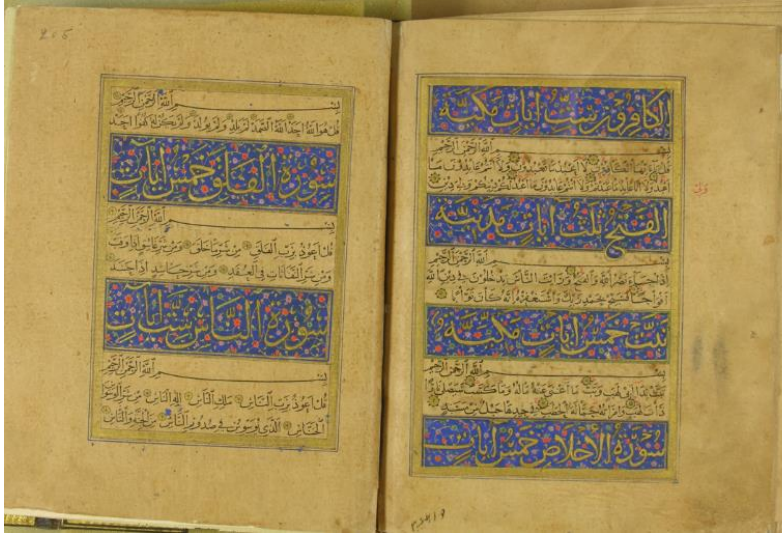 الكافرون ست ايات مكية
بسم الله الرحمن الرحيم
قل يا ايها الكافرون لا اعبد ما تعبدون ولا انتم عابدون ما
اعبد ولا انا عابد ما عبدتم ولا انتم عابدون ما اعبد لكم دينكم ولي دين
الفتح ثلث ايات مدنية
بسم الله الرحمن الرحيم
اذا جاء نصر الله والفتح ورايت الناس يدخلون في دين الله
افواجا فسبح بحمد ربك واستغفره انه كان توابا
تبت خمس ايات مكية
بسم الله الرحمن الرحيم
تبت يدا ابي لهب وتب ما اغنى عنه ماله وما كسب سيصلى نارا
ذات لهب وامراته حمالة الحطب في جيدها حبل من مسد
سورة الاخلاص خمس ايات
بسم الله الرحمن الرحيم
قل هو الله احد الله الصمد لم يلد ولم يولد ولم يكن له كفوا احد
سورة الفلق خمس ايات
بسم الله الرحمن الرحيم
قل اعوذ برب الفلق من شر ما خلق ومن شر غاسق اذا وقب
ومن شر النفاثات في العقد ومن شر حاسد اذا حسد
سورة الناس ست ايات
بسم الله الرحمن الرحيم
قل اعوذ برب الناس ملك الناس اله الناس من شر الوسواس
الخناس الذي يوسوس في صدور الناس من الجنة والناس